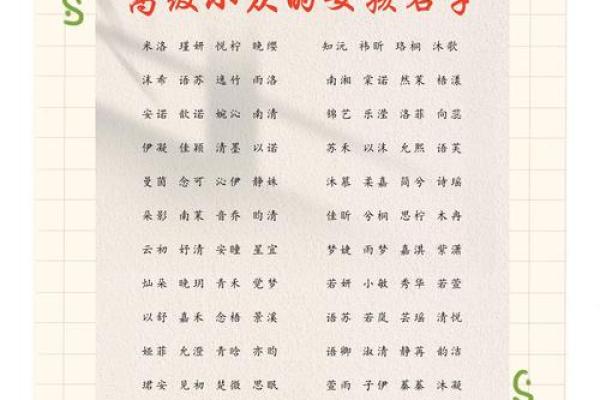 高级小众的女孩名字
米洛 瑾妍 悦柠 晚缨 知沅 祎昕 珞桐 沐歌
沫希 语苏 逸竹 雨洛 南湘 棠诺 然茉 梧漾
安诺 歆诺 婉沁 南清 锦艺 乐滢 洛菲 向蕊
伊凝 佳颖 清墨 以诺 苏禾 以沫 允熙 语芙
曼茵 念可 沁伊 静姝 沐慕 柔嘉 简兮 诗瑶
朵影 南茉 音乔 昀清 佳昕 兮桐 思柠 木冉
云初 妤清 安瞳 星宜 梦婕 雨梦 嘉淇 紫潇
灿朵 晚玥 青禾 觉梦 若妍 小敏 秀华 若萱
以舒 嘉禾 念梧 景溪 语苏 若岚 芸瑶 清悦
娅菲 允澄 青晗 亦昀 语卿 淑清 静苒 韵洁
珺安 见初 楚微 思眠 萱雨 子伊 蓁蓁 沐凝